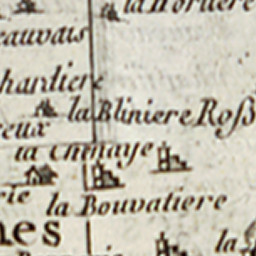 la Hortiere
eauvais
hantiere
la Bliniere Roß
reux
la Chinaye
rie la Bouvatiere
nes
la